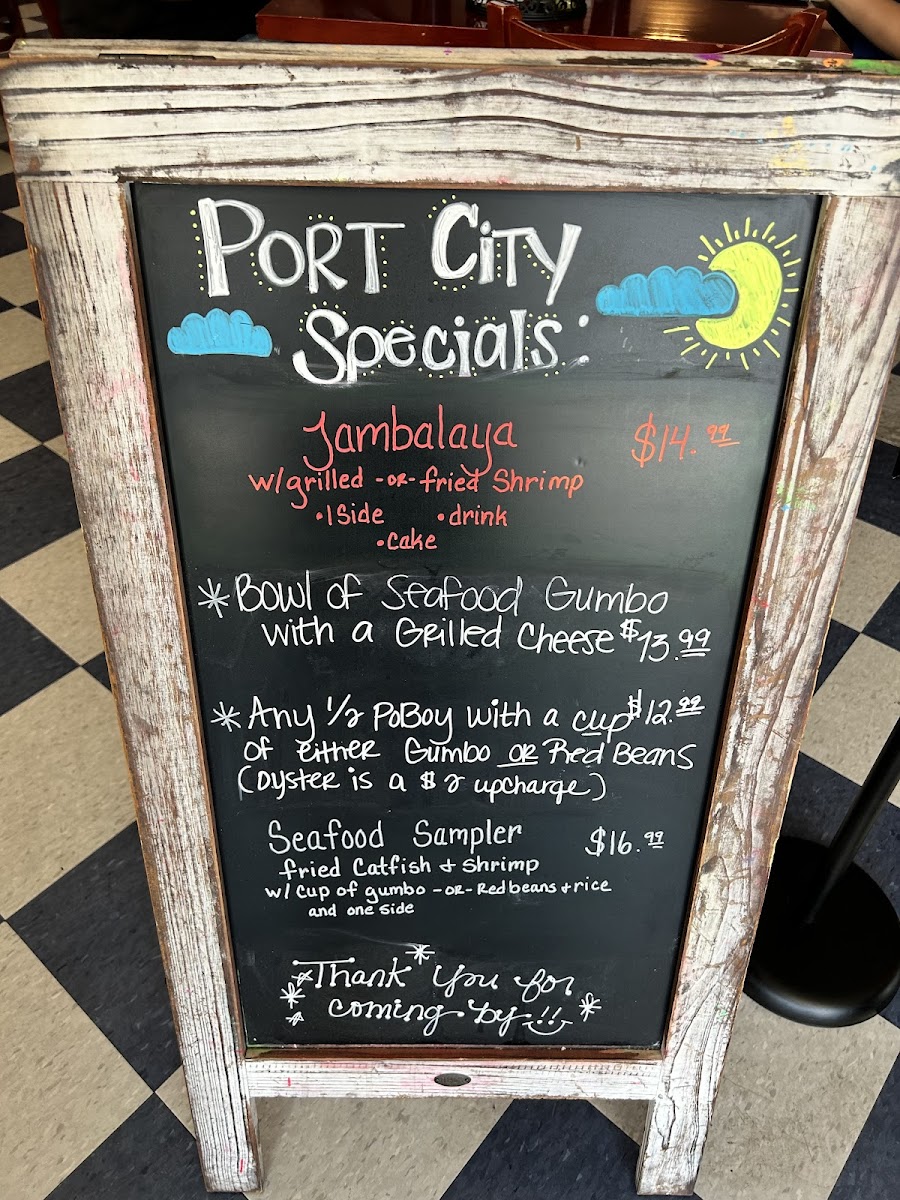 Port City
Specials:
Jambalaya $14.99
w/grilled -or- fried Shrimp
•1 Side •drink
•cake
*Bowl of Seafood Gumbo
with a Grilled Cheese $13.99
*Any 1/2 PoBoy with a cup $12.99
of either Gumbo or Red Beans
(Oyster is a $2 upcharge)
Seafood Sampler $16.99
fried Catfish + Shrimp
w/ cup of gumbo -or- Redbeans + rice
and one side
Thank you for
coming by!!